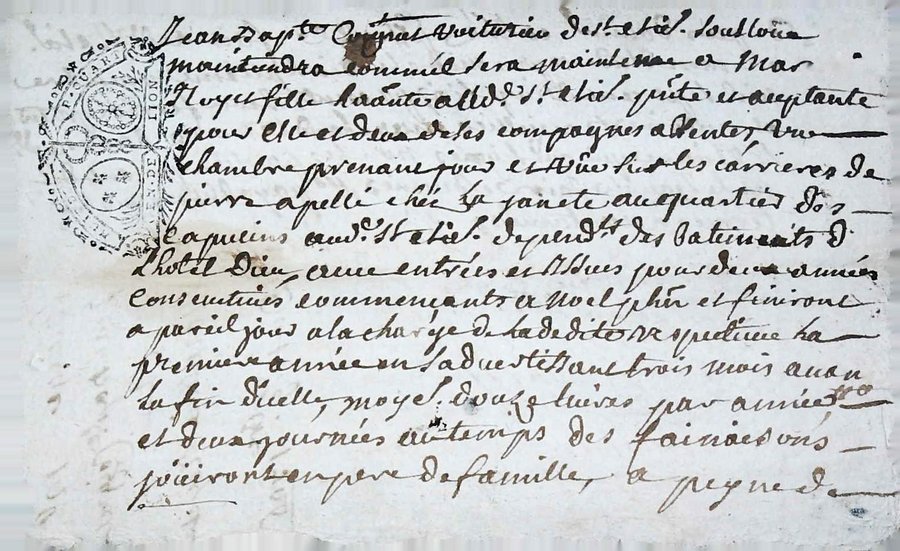 Jean Bapte voiturier de St Etie. soubloue
maintiendra comme il sera maintenu a Mar
Noyer fille hante aud. St Etie. pnte et aceptante
pour elle et deux de ses compagnes absentes une
chambre prenant jour et vüe sur les carrieres de
pierre apellé chéz la janete au quartier des
Capucins aud. St Etie. dependt des batiments d
L'hotel Dieu, avec entrées et issues pour deux années
Consecutives commencants a Noel phn et finiront
a pareil jour a la charge de la dedite respective la
premiere année en s'advertissant trois mois avan
la fin d'icelle, moyet. douze livres par année
et deux journées au temps des fainaisons
joüiront en pere de famille, a peyne de
P QUART
GEN DE LION